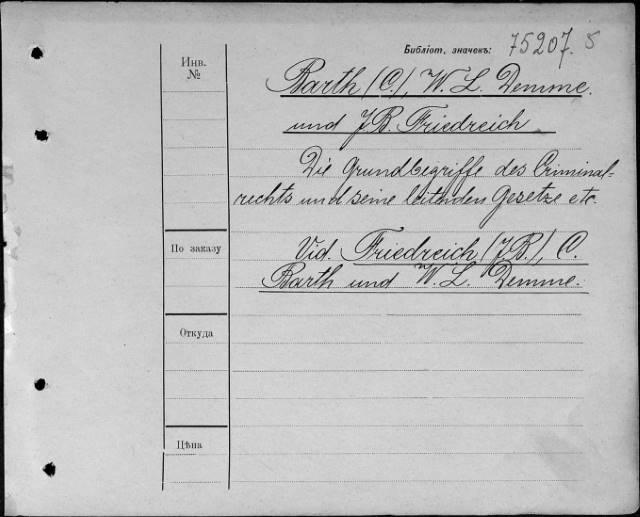 Библіот. значекъ: 75207. 5
Инв. №
Barth (C.), W. L. Demme.
und J. B. Friedreich
Die Grundbegriffe des Criminal-
rechts und seine leitenden Gesetze etc.
По заказу
Vid. Friedreich (J. B.), C.
Barth und W. L. Demme.
Откуда
Цѣна